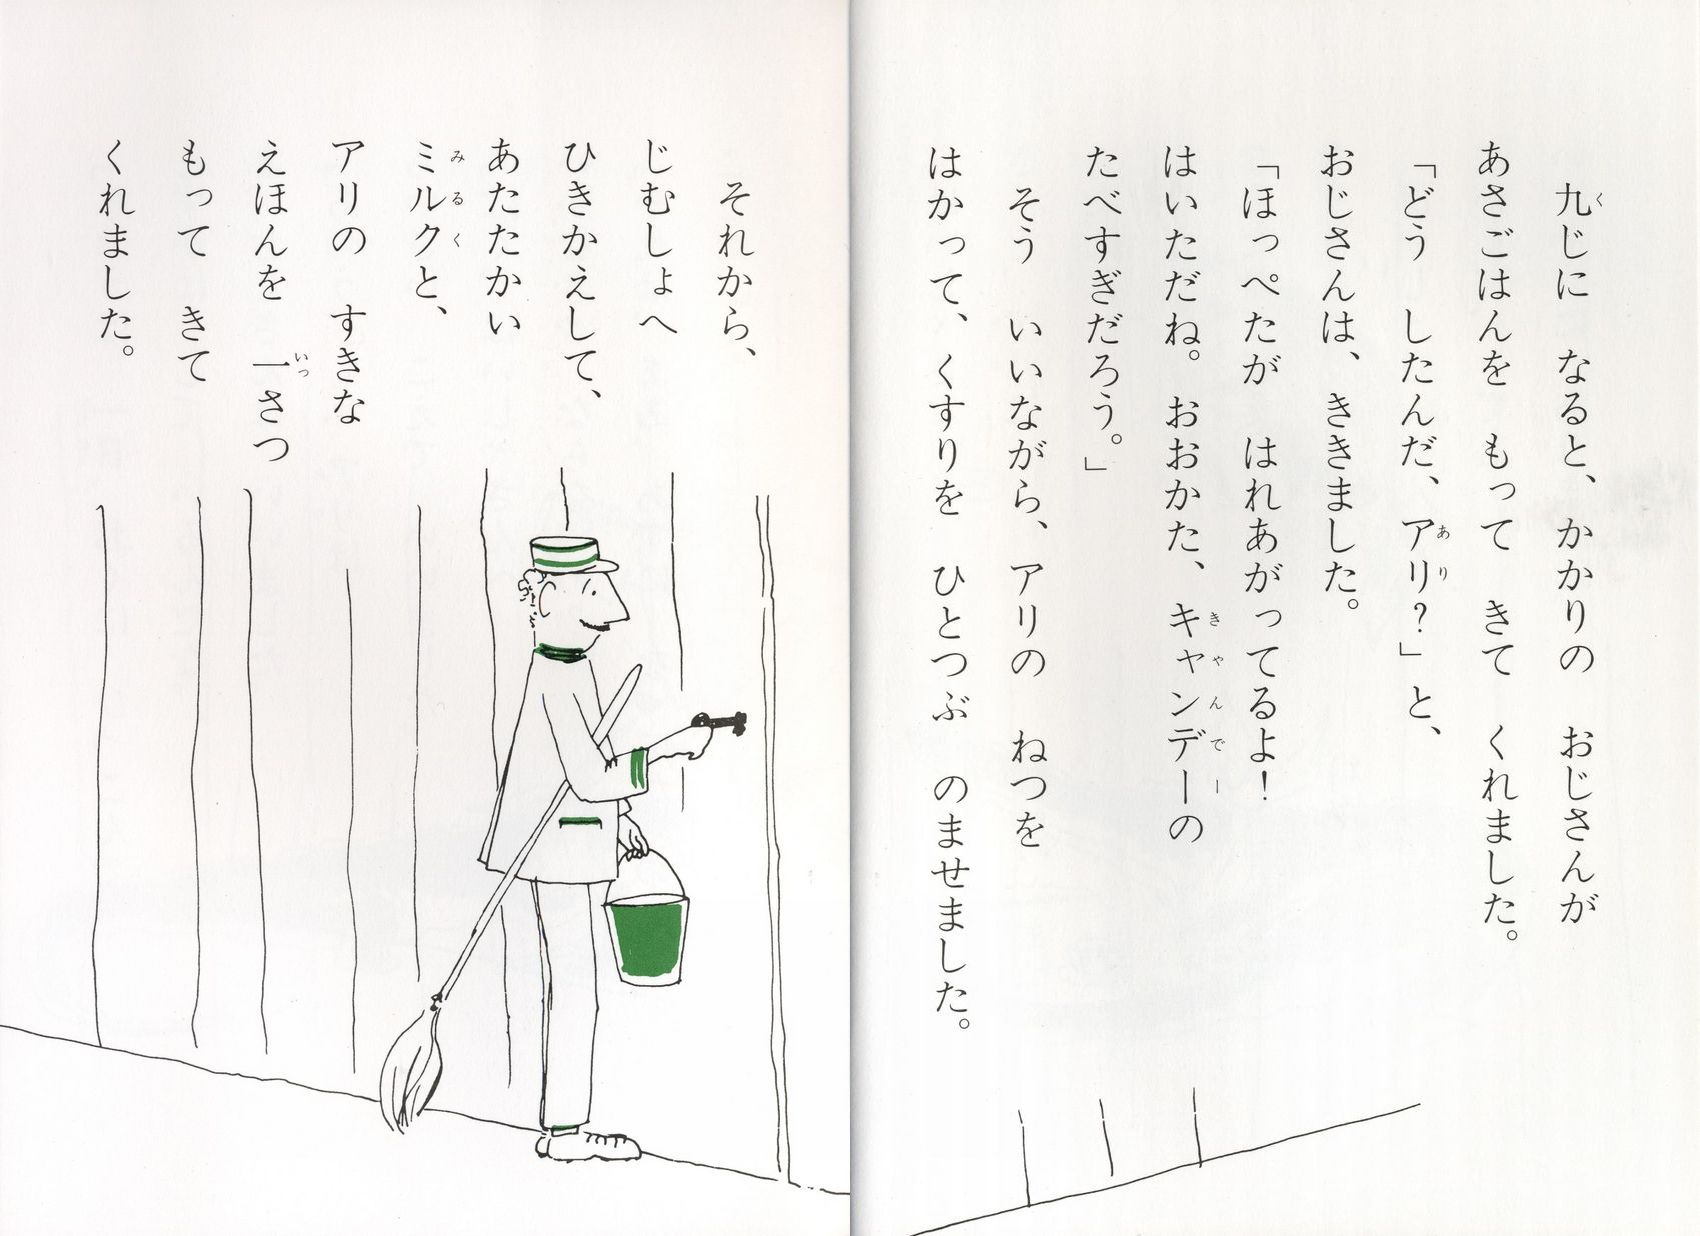 九じに なると、かかりの おじさんが
あさごはんを もって きて くれました。
「どう したんだ、アリ？」と、
おじさんは、ききました。
「ほっぺたが はれあがってるよ！
はいただね。おおかた、キャンデーの
たべすぎだろう。」
そう いいながら、アリの ねつを
はかって、くすりを ひとつぶ のませました。
それから、
じむしょへ
ひきかえして、
あたたかい
ミルクと、
アリの すきな
えほんを 一さつ
もって きて
くれました。